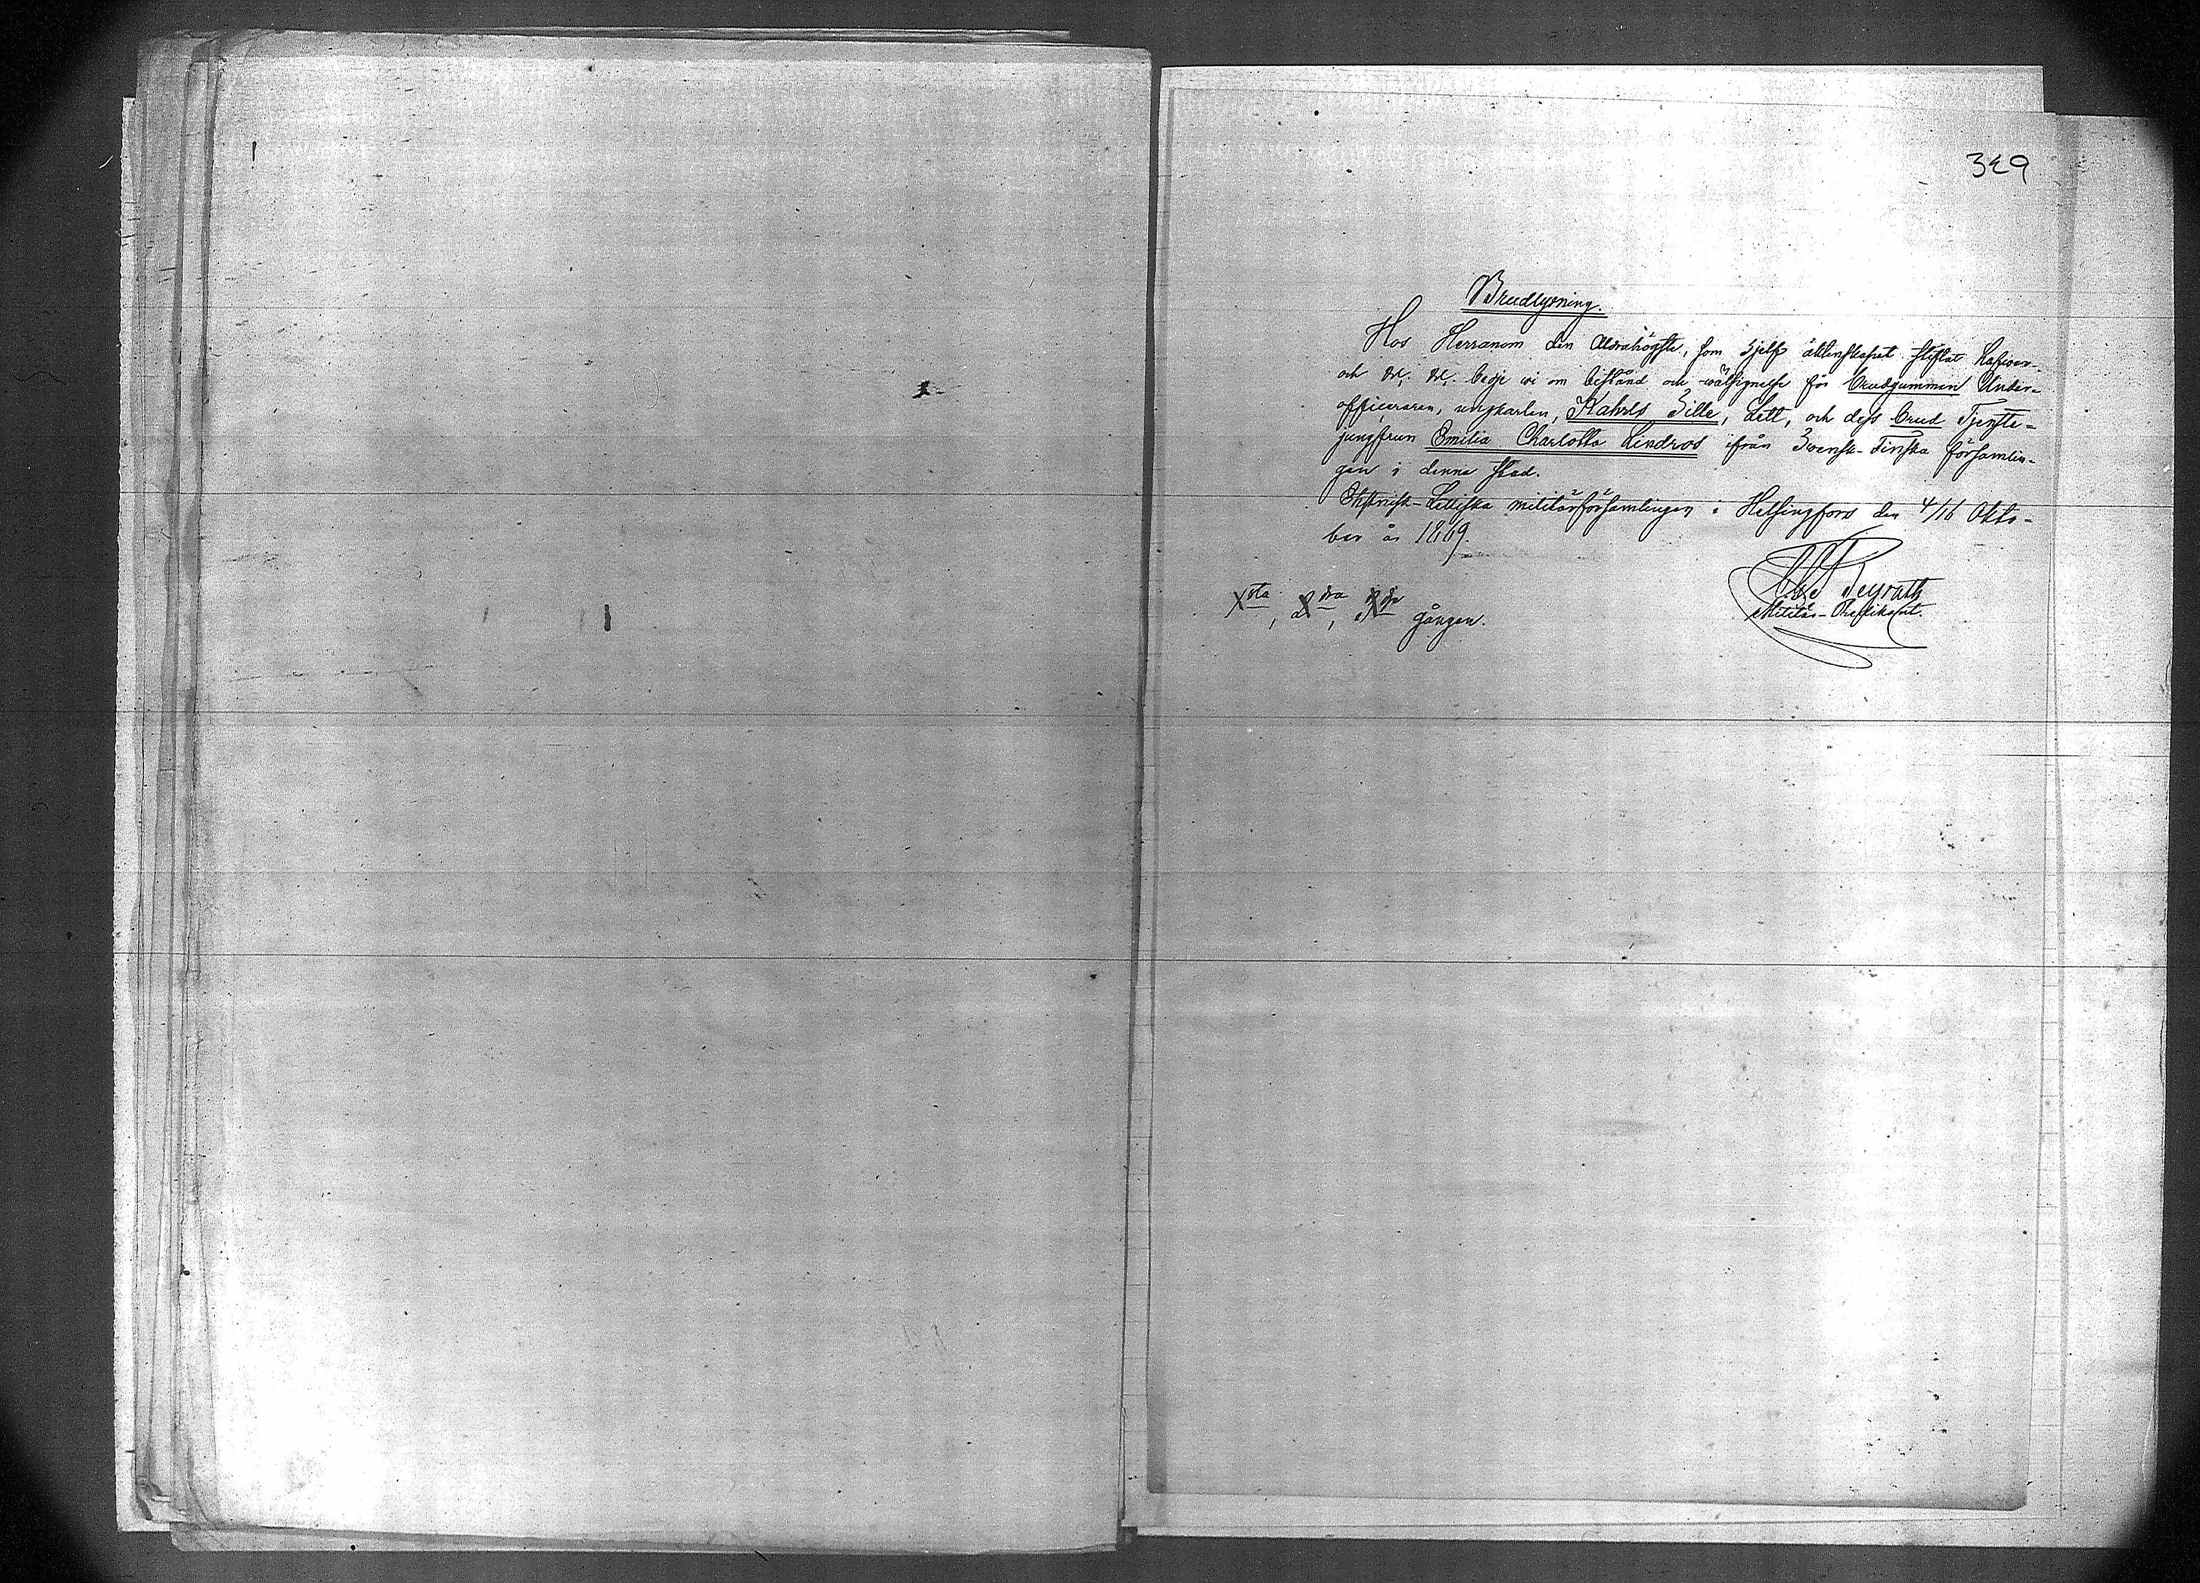 329
Brudlysning.
Hos Herranom den Aldrahögste, som Sjelf äktenskapet stiftat hafwer
och bedje wi om bistånd och wälsignelse för brudgummen Under-
officeraren, ungkarlen, Kahrls Sille, Lett, och dess brud Tjenste-
jungfrun Emilia Charlotta Lindros ifrån Swensk-Finska församlin-
gen i denna stad.
Ehstnisk-Lettiska militärförsamlingen i Helsingfors den 4/16 Okto-
ber år 1869.
Militär-Predikant.
X sta, X dra, X dje gången.